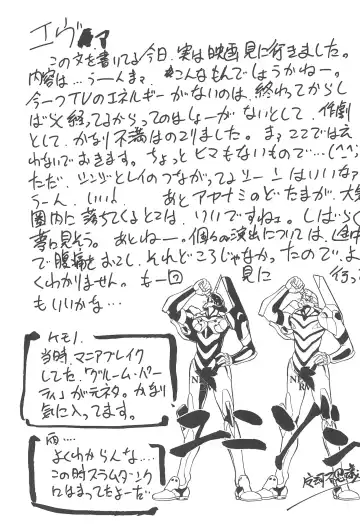 エヴ
この文を書いてる今日、実は映画見に行きました。
内容は…うーんまァ、こんなもんでしょうかねー。
今一つTVのエネルギーがないのは、終わってからし
ばらく経ってるからってのはしょーがないとして、作劇
として、かなり不満はのこりました。まァここでは言
わないでおきます。ちょっとヒマもないもので…(^^;
ただ、シンジとレイのつながってるシーンはいいなァ
うーん、いい。あとアヤナミのどたまが、大気
圏内に落ちてくるとこは、いいですねェ。しばらく
夢に見そう。あとねー。個々の演出については、途中
で腹痛をおこし、それどころじゃなかったので、よ
くわかりません。もー一回 見に 行っ
もいいかな…
ケモノ.
当時、マニアブレイク
してた、「グルーム・パー
ティ」が元ネタ。かなり
気に入ってます。
雨….
よくわからんな…
この時スラムダンク
にはまってたよーだ…